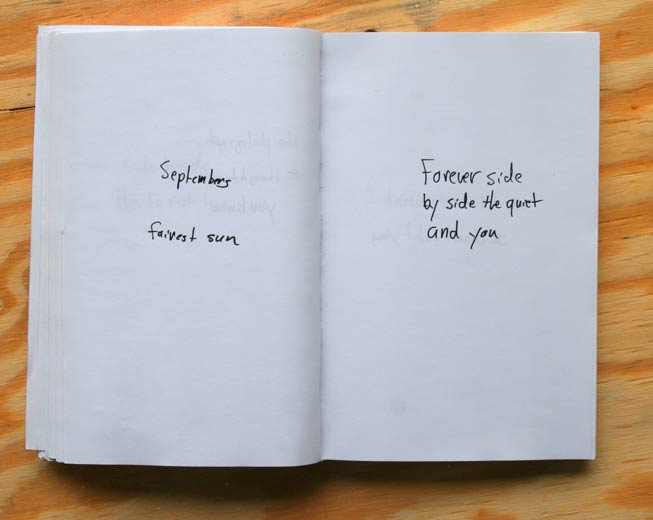 Septembers
fairest sun
Forever side
by side the quiet
and you